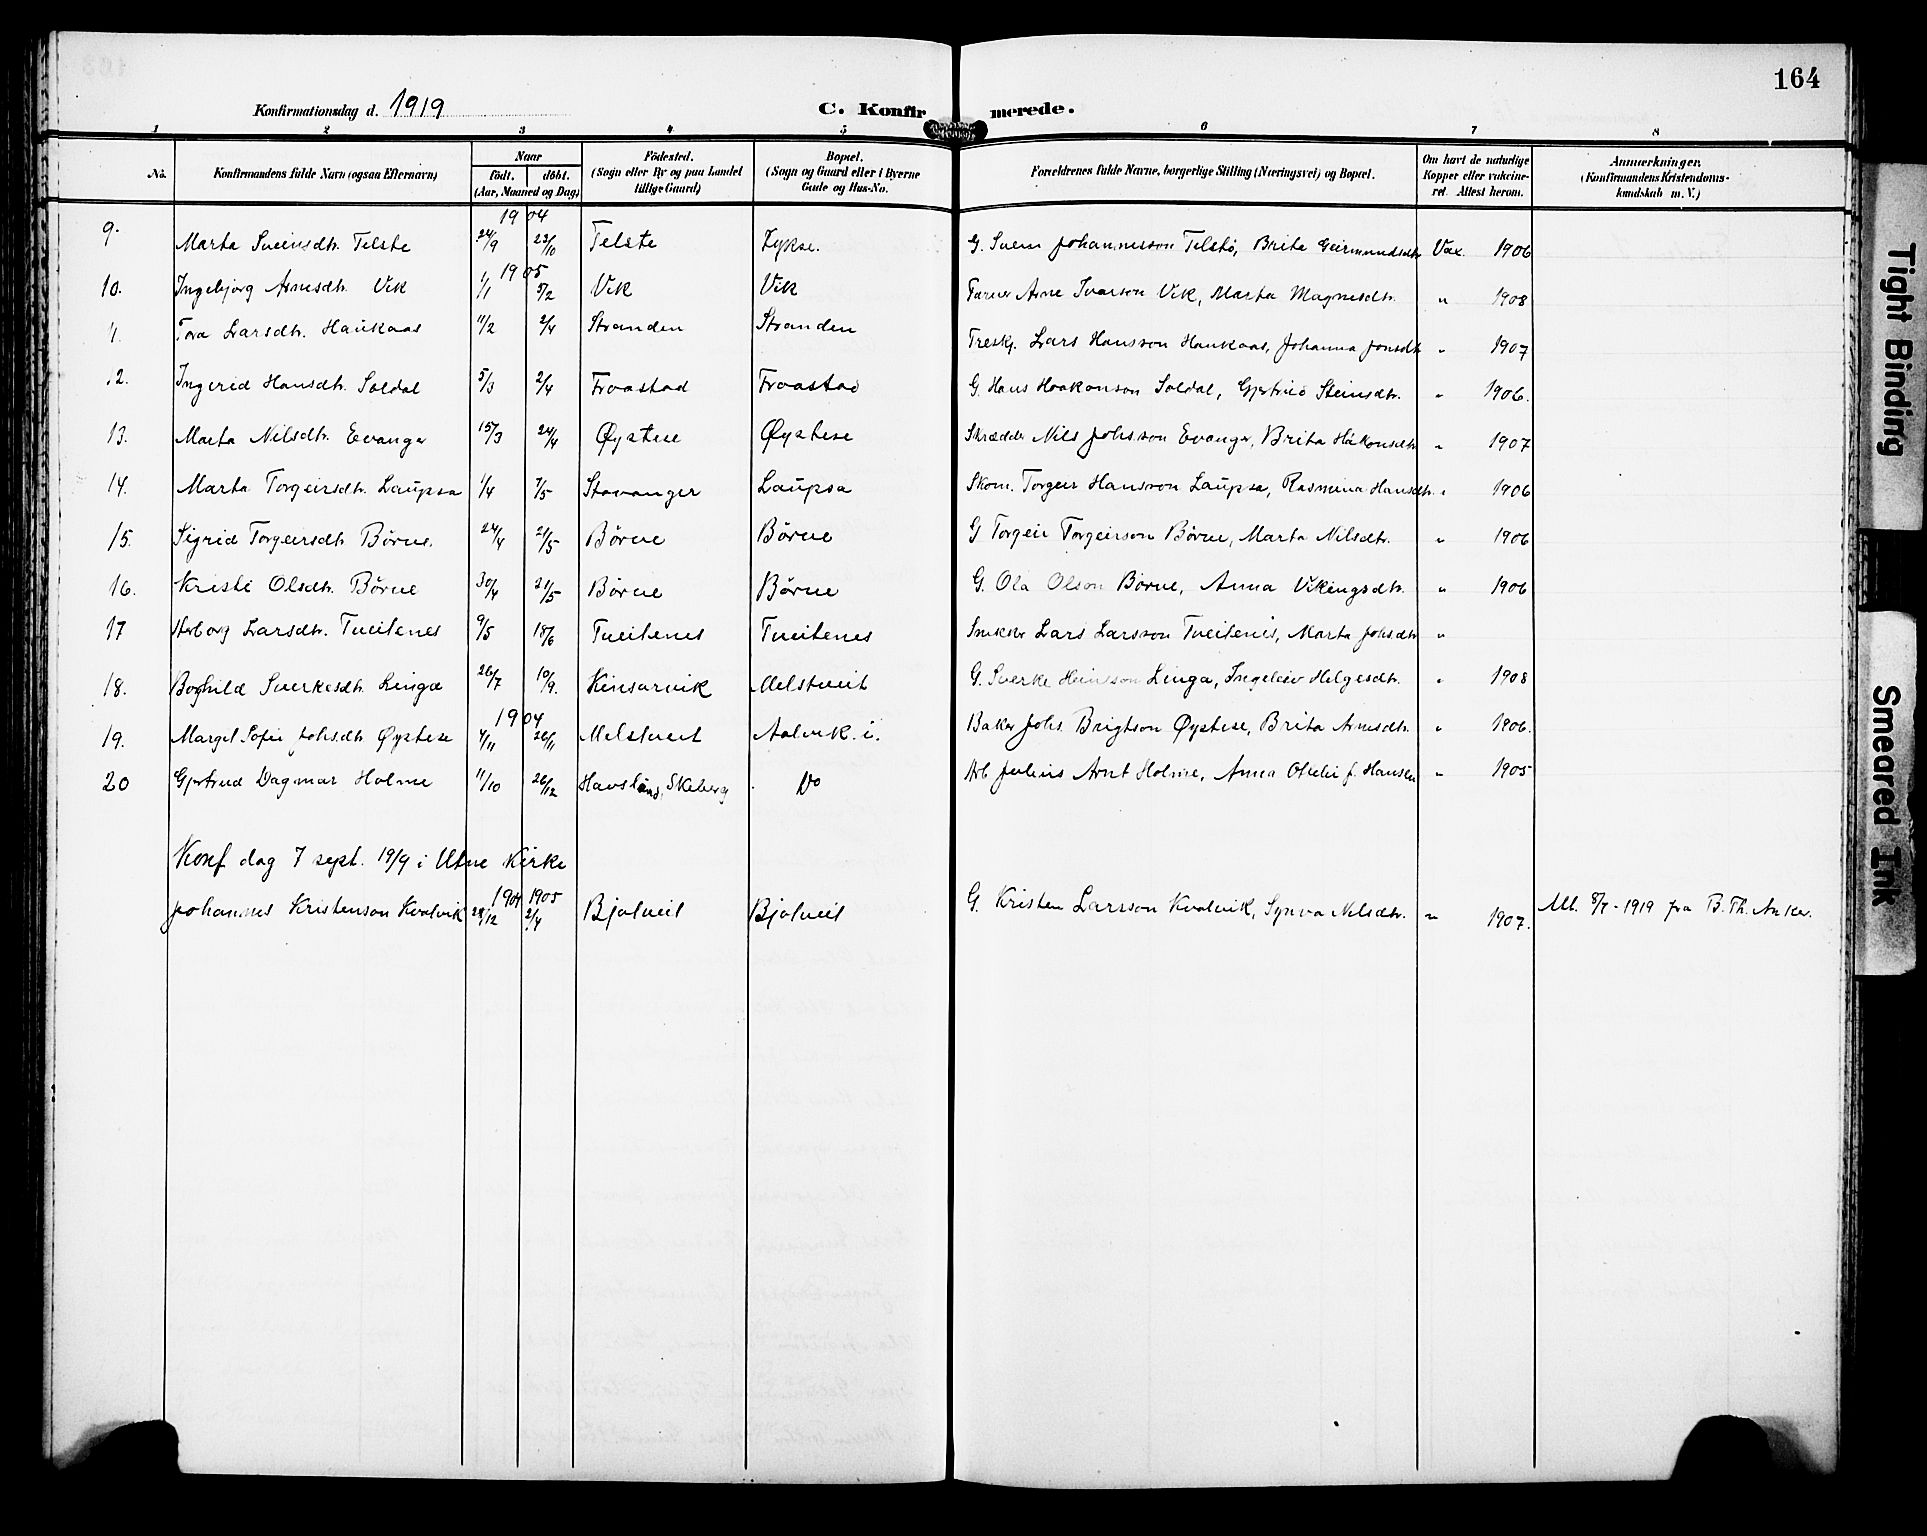 164
Konfirmationsdag d. 1919
C. Konfirmerede.
1 2 3 4 5 6 7 8
No.
Konfirmandens fulde Navn (ogsaa Efternavn)
Naar
født. døbt.
(Aar, Maaned og Dag)
Födested.
(Sogn eller By og paa Landet
tillige Gaard)
Bopæl.
(Sogn og Gaard eller i Byerne
Gade og Hus-No.
Forældrenes fulde Navne, borgerlige Stilling (Næringsvei) og Bopæl.
Om havt de naturlige
Kopper eller vakcine-
ret. Attest herom.
Anmærkninger.
(Konfirmandens Kristendoms-
kundskab m. V.)
1904
9. Marta Sveinsdtr. Telste 24/9 23/10 Telste Fykse. G. Svein Johannesson Telstø, Brita Geirmundsdtr Vax. 1906
1905
10. Ingebjørg Arnesdtr. Vik 1/1 5/2 Vik Vik Farver Arne Ivarson Vik, Marta Magnesdtr. " 1908
11. Tora Larsdtr. Haukaas 11/2 2/4 Stranden Stranden Treskj. Lars Hansson Haukaas, Johanna Jonsdtr " 1907
12. Ingerid Hansdtr. Soldal 5/3 2/4 Froastad Froastad G. Hans Haakonson Soldal, Gjertrud Steinsdtr. " 1906.
13. Marta Nilsdtr. Evanger 15/3 24/4 Øystese Øystese Skrædder Nils Johsson Evanger, Brita Håkonsdtr " 1907
14. Marta Torgeirsdtr. Laupsa 1/4 7/5 Stavanger Laupsa Skom. Torgeir Hansson Laupsa, Rasmina Hansdtr. " 1906
15. Sigrid Torgeirsdtr. Børve. 24/4 21/5 Børve Børve G Torgeir Torgeirson Børve, Marta Nilsdtr. " 1906
16. Kristi Olsdtr. Børve 30/4 21/5 Børve Børve G. Ola Olson Børve, Anna Vikingsdtr. " 1906
17 Herborg Larsdtr. Tveitenes 9/5 18/6 Tveitenes Tveitenes Snikker Lars Larsson Tveitenes, Marta Johsdtr "
18. Borghild Sverkesdtr. Linga 26/7 10/9. Kinsarvik Melstveit G. Sverke Heinsson Linga, Ingeleiv Helgesdtr. " 1908
1904
19. Margit Sofie Johsdtr Øystese 4/11 26/11 Melstveit Aalvik. i. Baker Johs. Brigtson Øystese, Brita Arnesdtr. " 1906.
20 Gjertrud Dagmar Holme 11/10 26/12 Havslund, Skeberg Do Arb Julius Arnt Holme, Anna Otelie f. Hansen " 1905
Konf dag 7 sept. 1919 i Utne Kirke
1904 1905
Johannes Kristenson Kvalvik 28/12 2/4 Bjølveit Bjølveit G. Kristen Larsson Kvalvik, Synva Nilsdtr. " 1907. Ut. 8/7-1919 fra B. Th. Anker.
Tight Binding
Smeared Ink